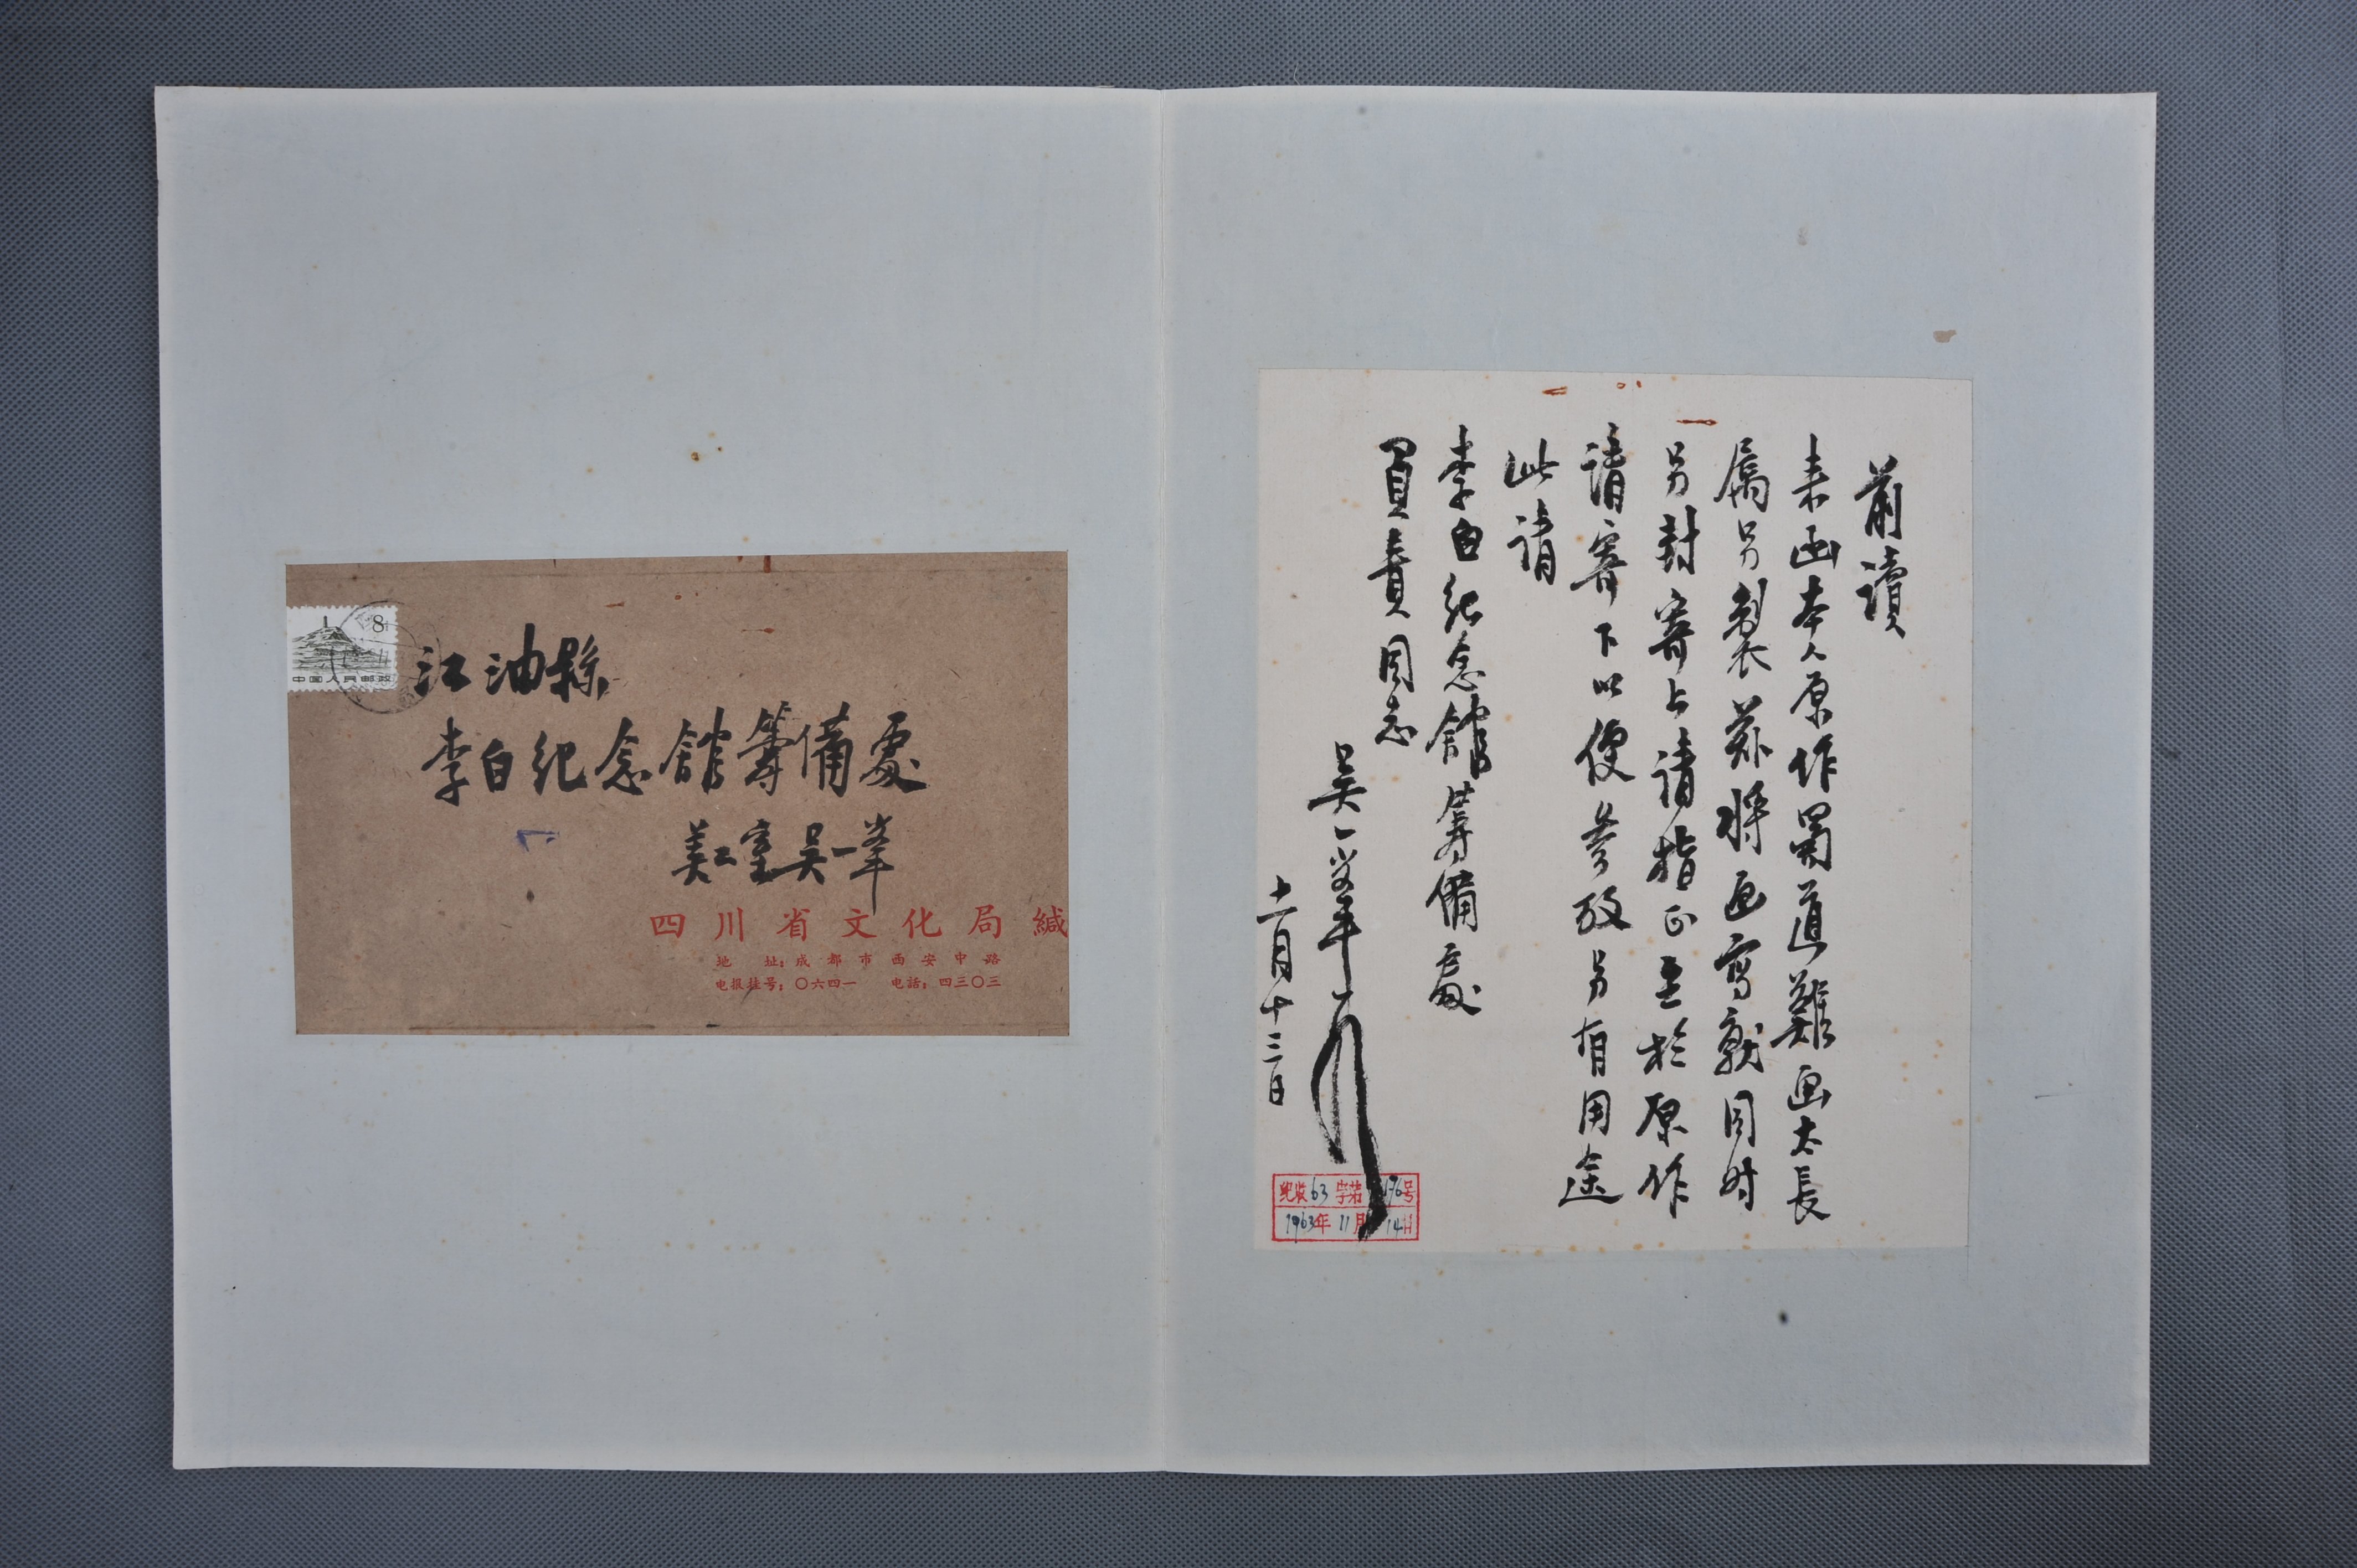 前讀
来函本人原作蜀道難画太長
属另製茲将画寫就同时
另封寄上请指正至於原作
请寄下以便参攷另有用途
此请
李白纪念館筹備處
負責同志
吴一峯
十一月十三日
纪收63字第176号
1963年11月14日
8
中国人民邮政
江油縣
李白纪念館籌備處
美工室吴一峯
四川省文化局緘
地 址：成都市西安中路
电报挂号：〇六四一 电話：四三〇三